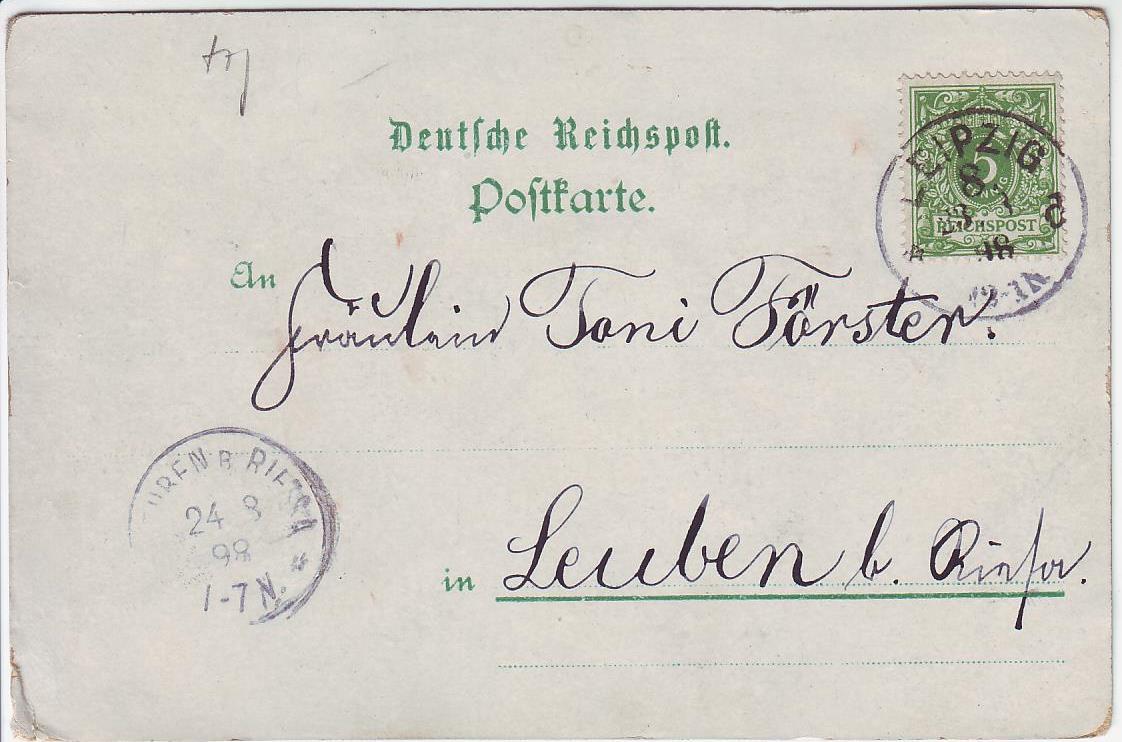 Deutsche Reichspost.
Postkarte.
LEIPZIG
8
5
REICHSPOST
98
An Fräulein Toni Förster.
B. RIESA
24 8
98
-7 N.
in Leuben b. Riesa.